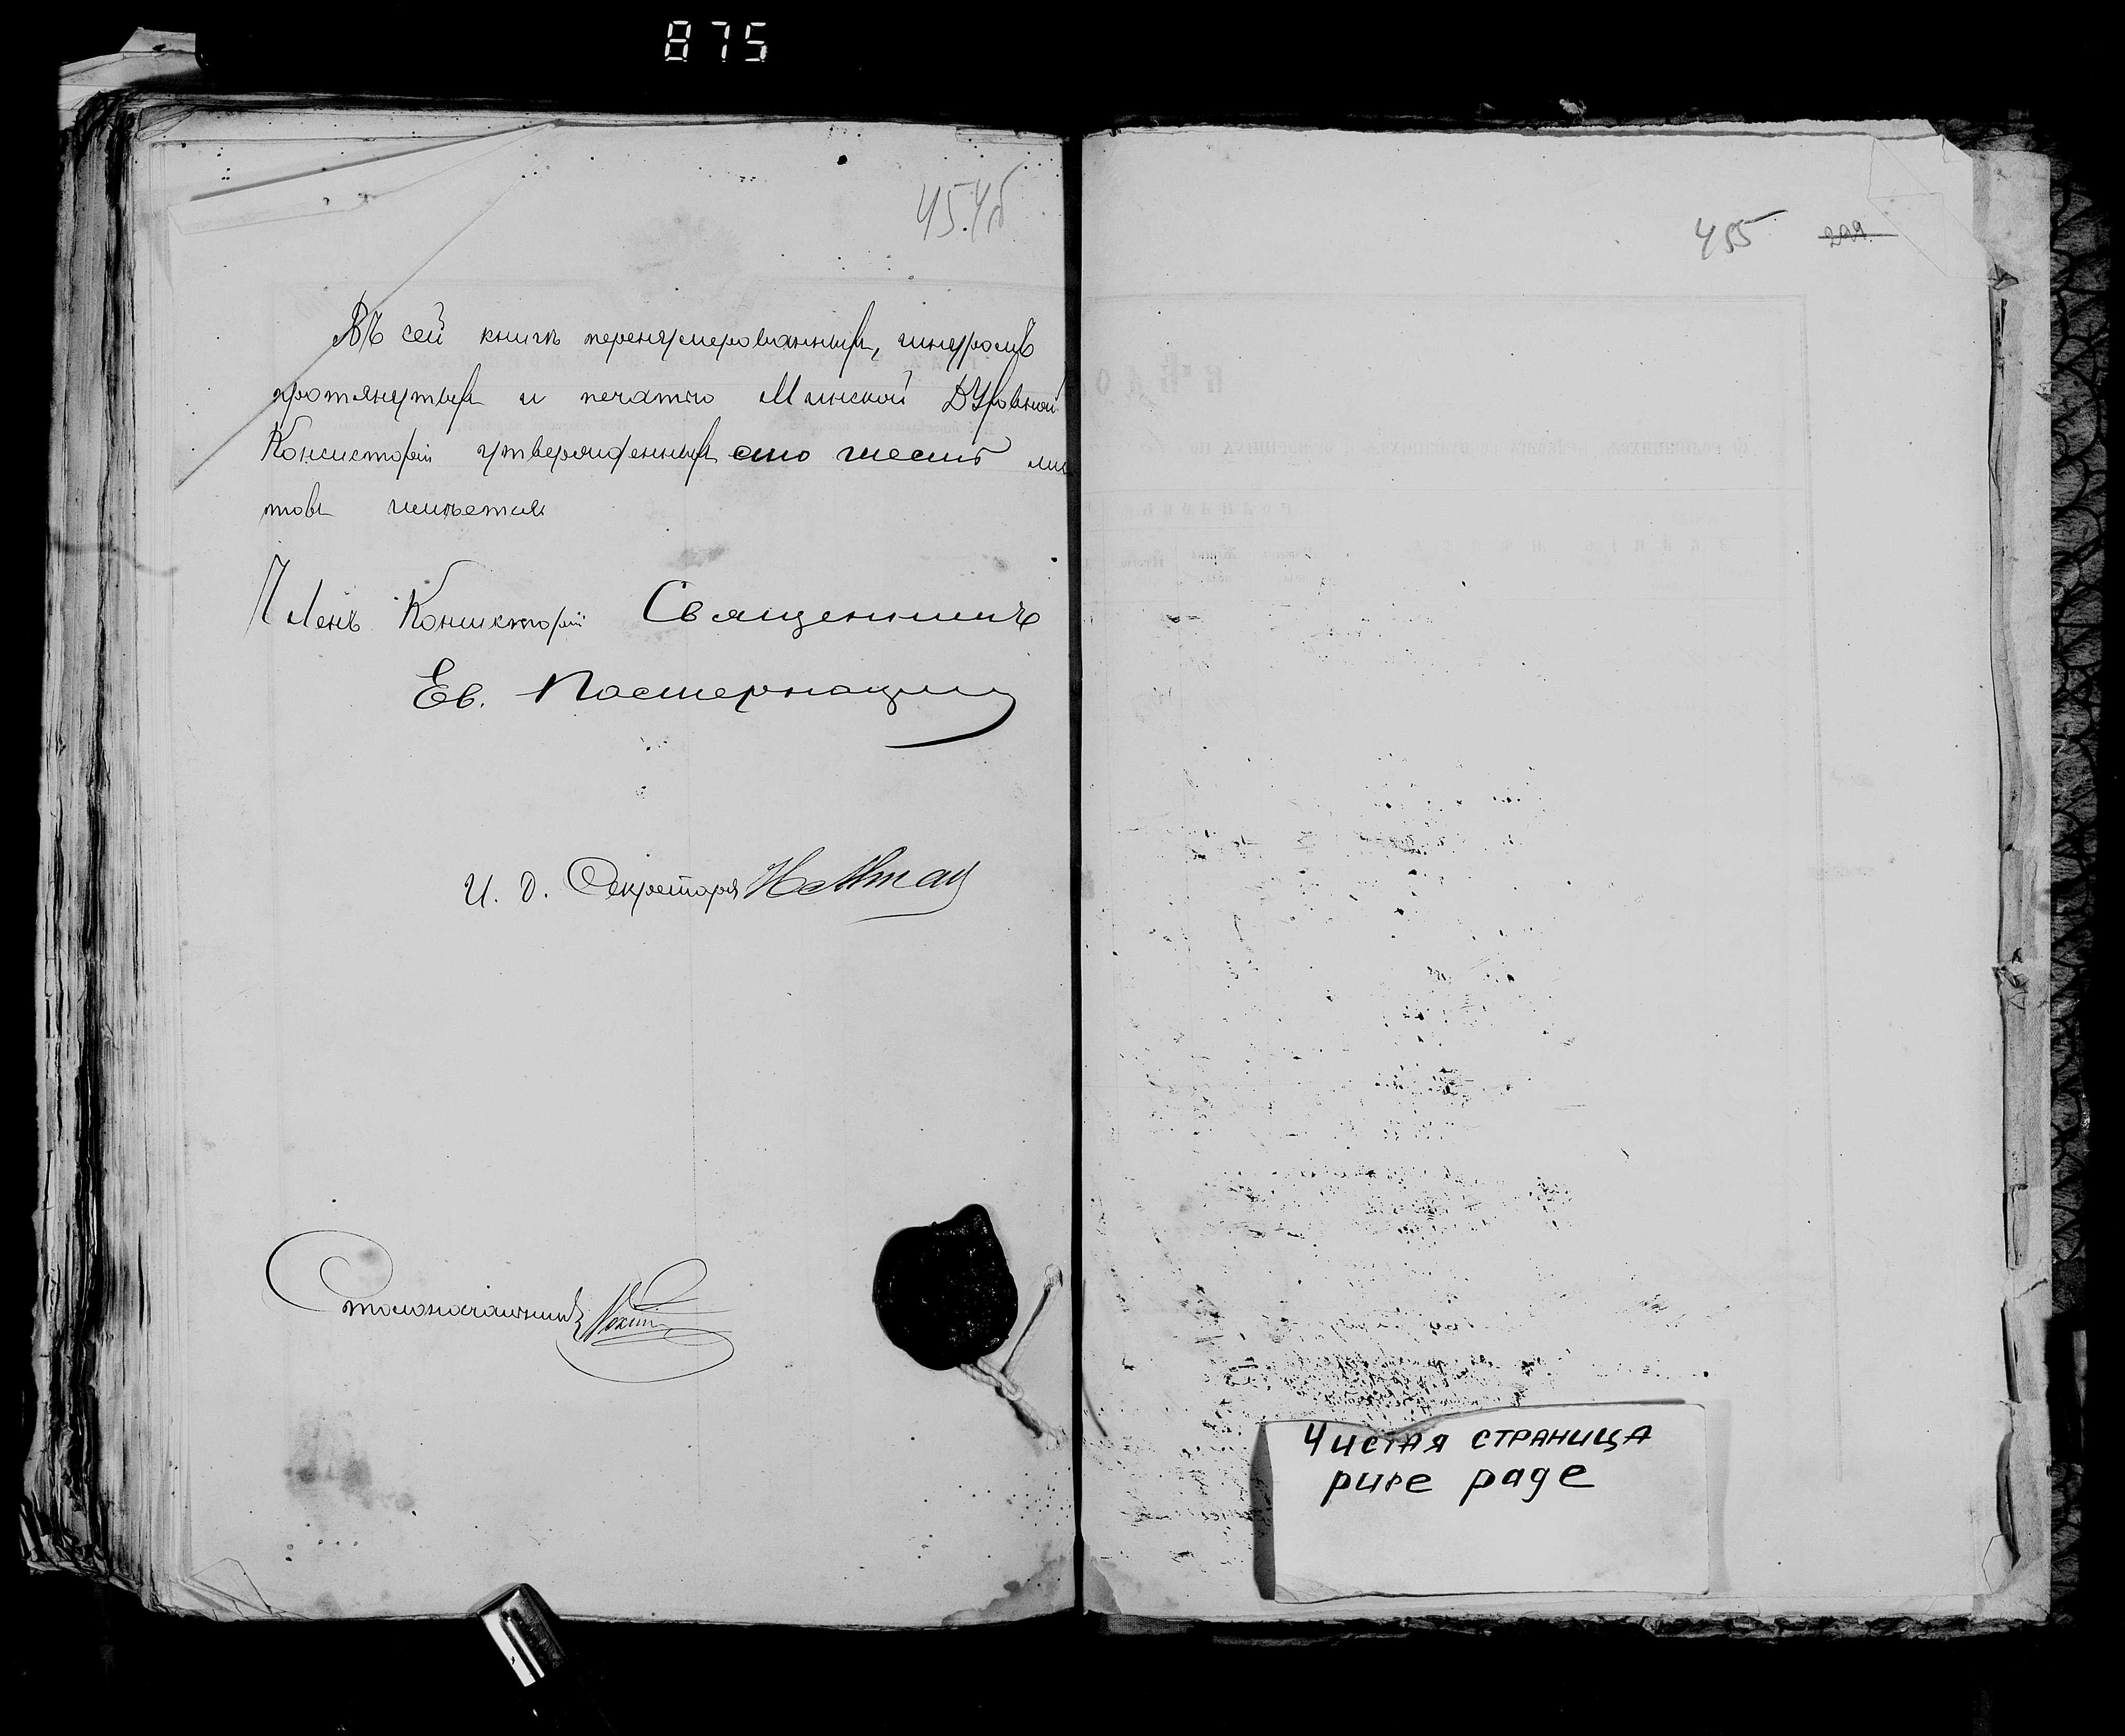 875
454б
Въ сей книгѣ перенумерованныхъ, шнуромъ
протянутыхъ и печатью Минской Духовной
Консисторіи утвержденныхъ сто шесть лис
товъ имѣется
Членъ Консисторіи Священникъ
Ев. Пастернацкій
И. д. Секретаря
Столоначальникъ
455 229
Чистая страница
pure page